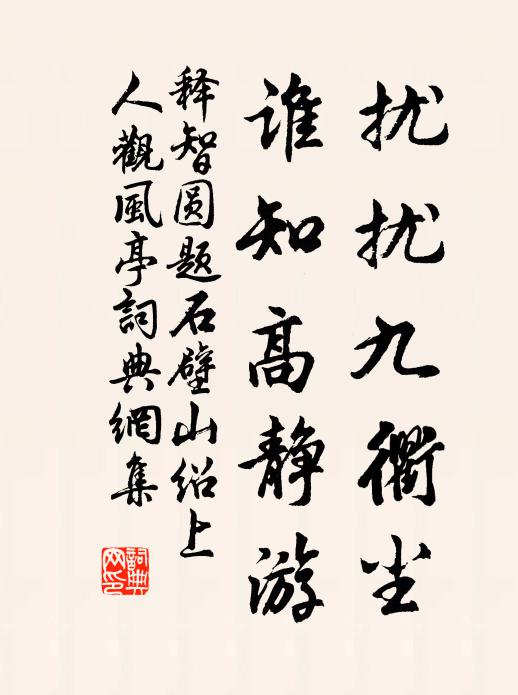 扰扰九衢尘
谁知高静游
释智圆题石壁山绍上
人觀風亭詞典網集
詞典
网印